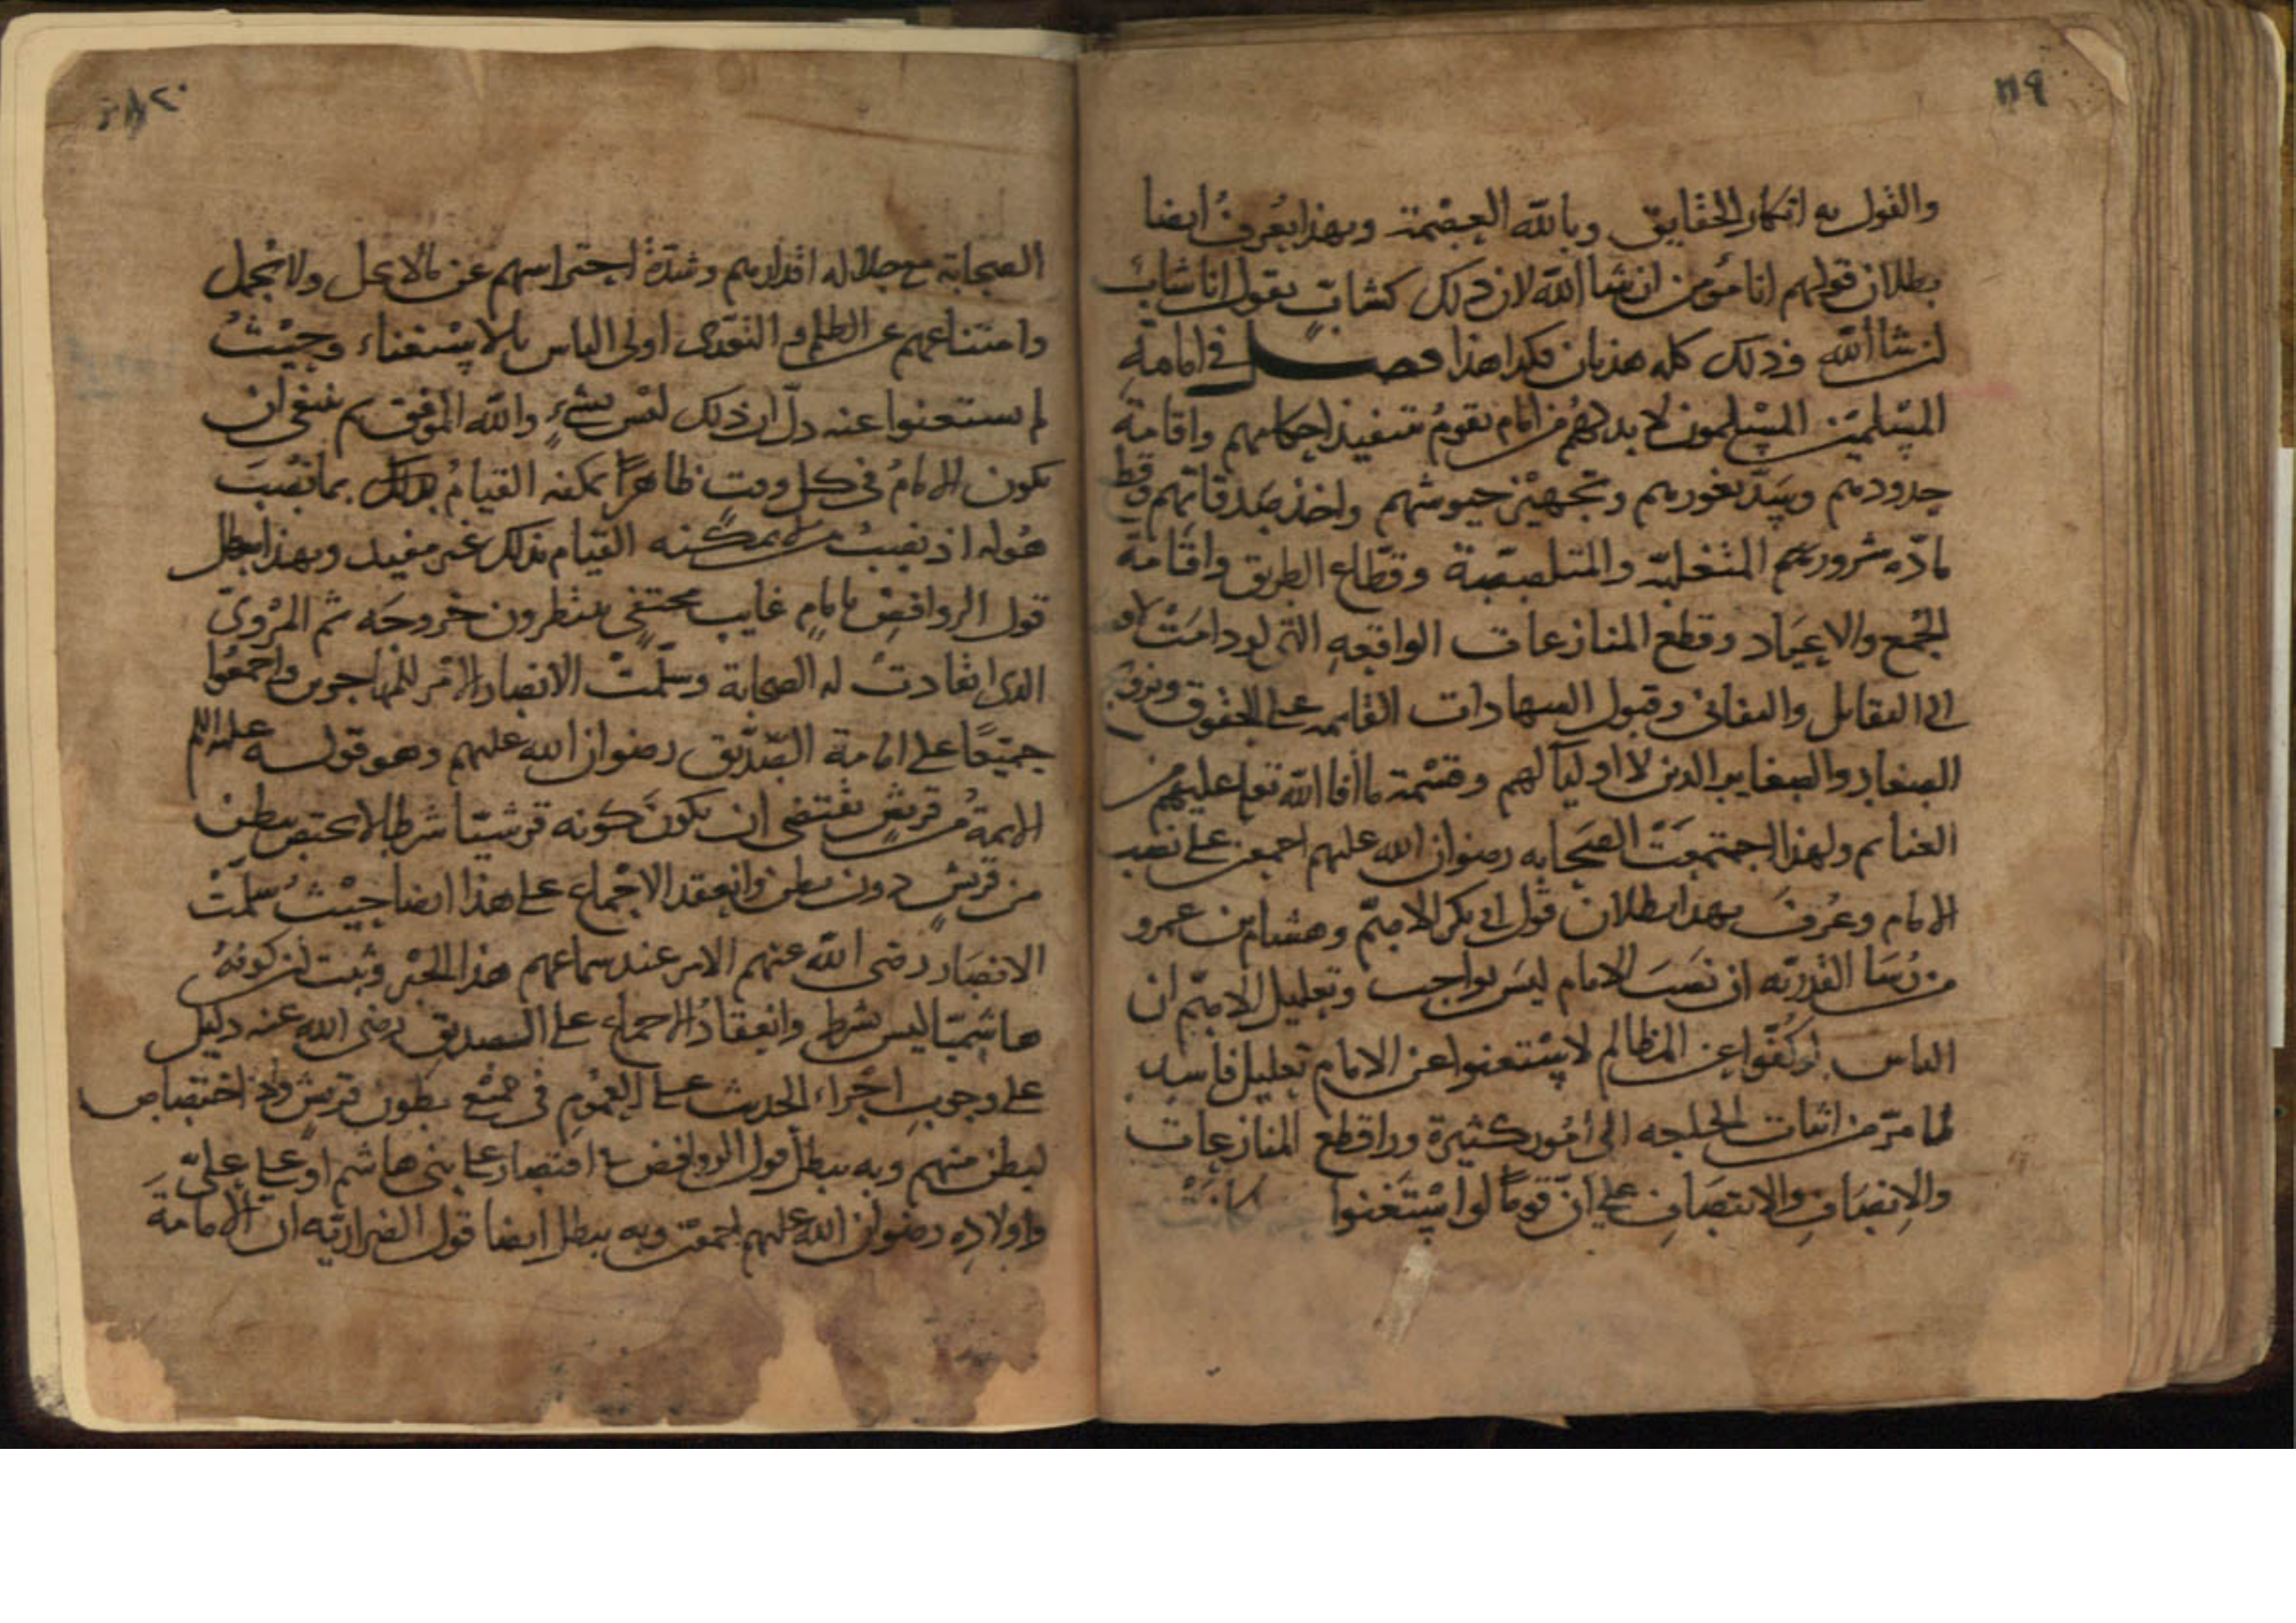 ١١٩
والقول به انكار الحقايق وبالله العصمة وبهذا يعرف ايضا
بطلان قولهم انا مؤمن ان شا الله لان ذلك كشاب يقول انا شاب
ان شا الله وذلك كله هذيان فكذا هذا فصل في امامة
المسلمين المسلمون لا بد لهم من امام يقوم بتنفيذ احكامهم واقامة
حدودهم وسد ثغورهم وتجهيز جيوشهم واخذ صدقاتهم وقطع
مادة شرور المتغلبة والمتلصصة وقطاع الطريق واقامة
الجمع والاعياد وقطع المنازعات الواقعة التي لو دامت لادت
الى التقاتل والتفاني وقبول الشهادات القايمة على الحقوق وتزويج
الصغار والصغاير الذين لا اوليآ لهم وقسمة ما افا الله تعالى عليهم من
الغنايم ولهذا اجتمعت الصحابه رضوان الله عليهم اجمعين على نصب
الامام وعرف بهذا بطلان قول ابي بكر الاصم وهشام بن عمرو
من رؤسا القدرية ان نصب الامام ليس بواجب وتعليل الاصم ان
الناس لو كفوا عن المظالم لاستغنوا عن الامام تعليل فاسد
لما مر من اثبات الحاجة الى امور كثيرة ورا قطع المنازعات
والانصاف والانتصاف على ان قوما لو استغنوا لكانت
١٢٠
الصحابة مع جلالة اقدارهم وشدة احتراسهم عن ما لا يحل ولا يجمل
وامتناعهم عن الظلم والتعدي اولى الناس بالاستغناء وحيث
لم يستغنوا عنه دل ان ذلك ليس بشيء والله الموفق ثم ينبغي ان
يكون الامام في كل وقت ظاهرا يمكنه القيام بذلك بما نصب
هو له اذ نصب من لا يمكنه القيام بذلك غير مفيد وبهذا يبطل
قول الروافض بامام غايب مختفي ينتظرون خروجه ثم المروي
الذي انقادت له الصحابة وسلمت الانصار الامر للمهاجرين واجمعوا
جميعا على امامة الصديق رضوان الله عليهم وهو قوله عليه السلم
الايمة من قريش يقتضي ان يكون كونه قرشيا شرطا لا يختص ببطن
من قريش دون بطن وانعقد الاجماع على هذا ايضا حيث سلمت
الانصار رضى الله عنهم الامر عند سماعهم هذا الخبر وثبت ان كونه
هاشميا ليس بشرط وانعقاد الاجماع على الصديق رضى الله عنه دليل
على وجوب اجراء الحديث على العموم في جميع بطون قريش ولا اختصاص
لبطن منهم وبه يبطل قول الروافض في اقتصارها على بني هاشم او على علي
واولاده رضوان الله عليهم اجمعين وبه يبطل ايضا قول الضرارية ان الامامة